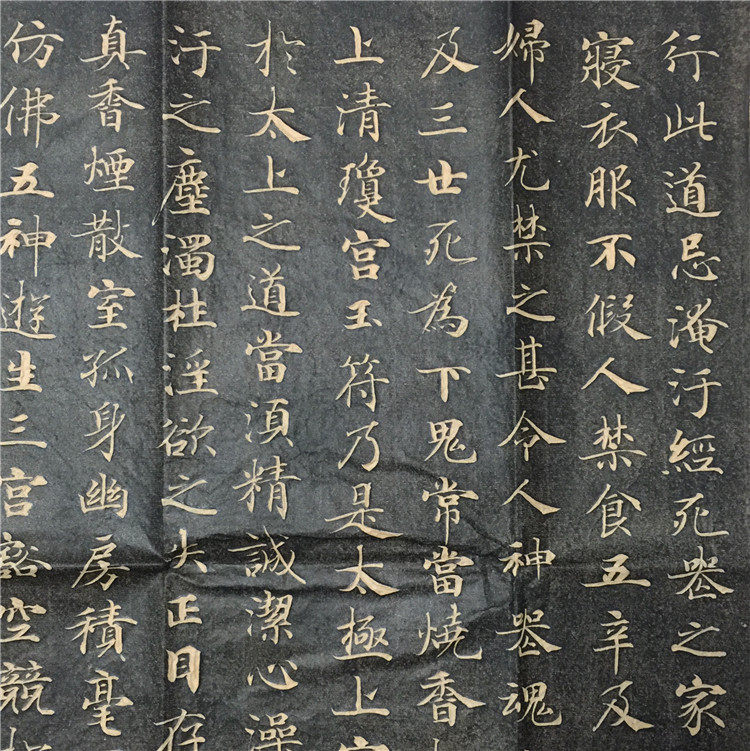 行此道忌淹汙經死喪之家
寢衣服不假人禁食五辛及
婦人尤禁之甚令人神喪魂
及三世死為下鬼常當燒香
上清瓊宮玉符乃是太極上
於太上之道當須精誠潔心澡
汙之塵濁杜淫欲之失正目存
真香煙散室孤身幽房積毫
仿佛五神遊生三宮豁空競